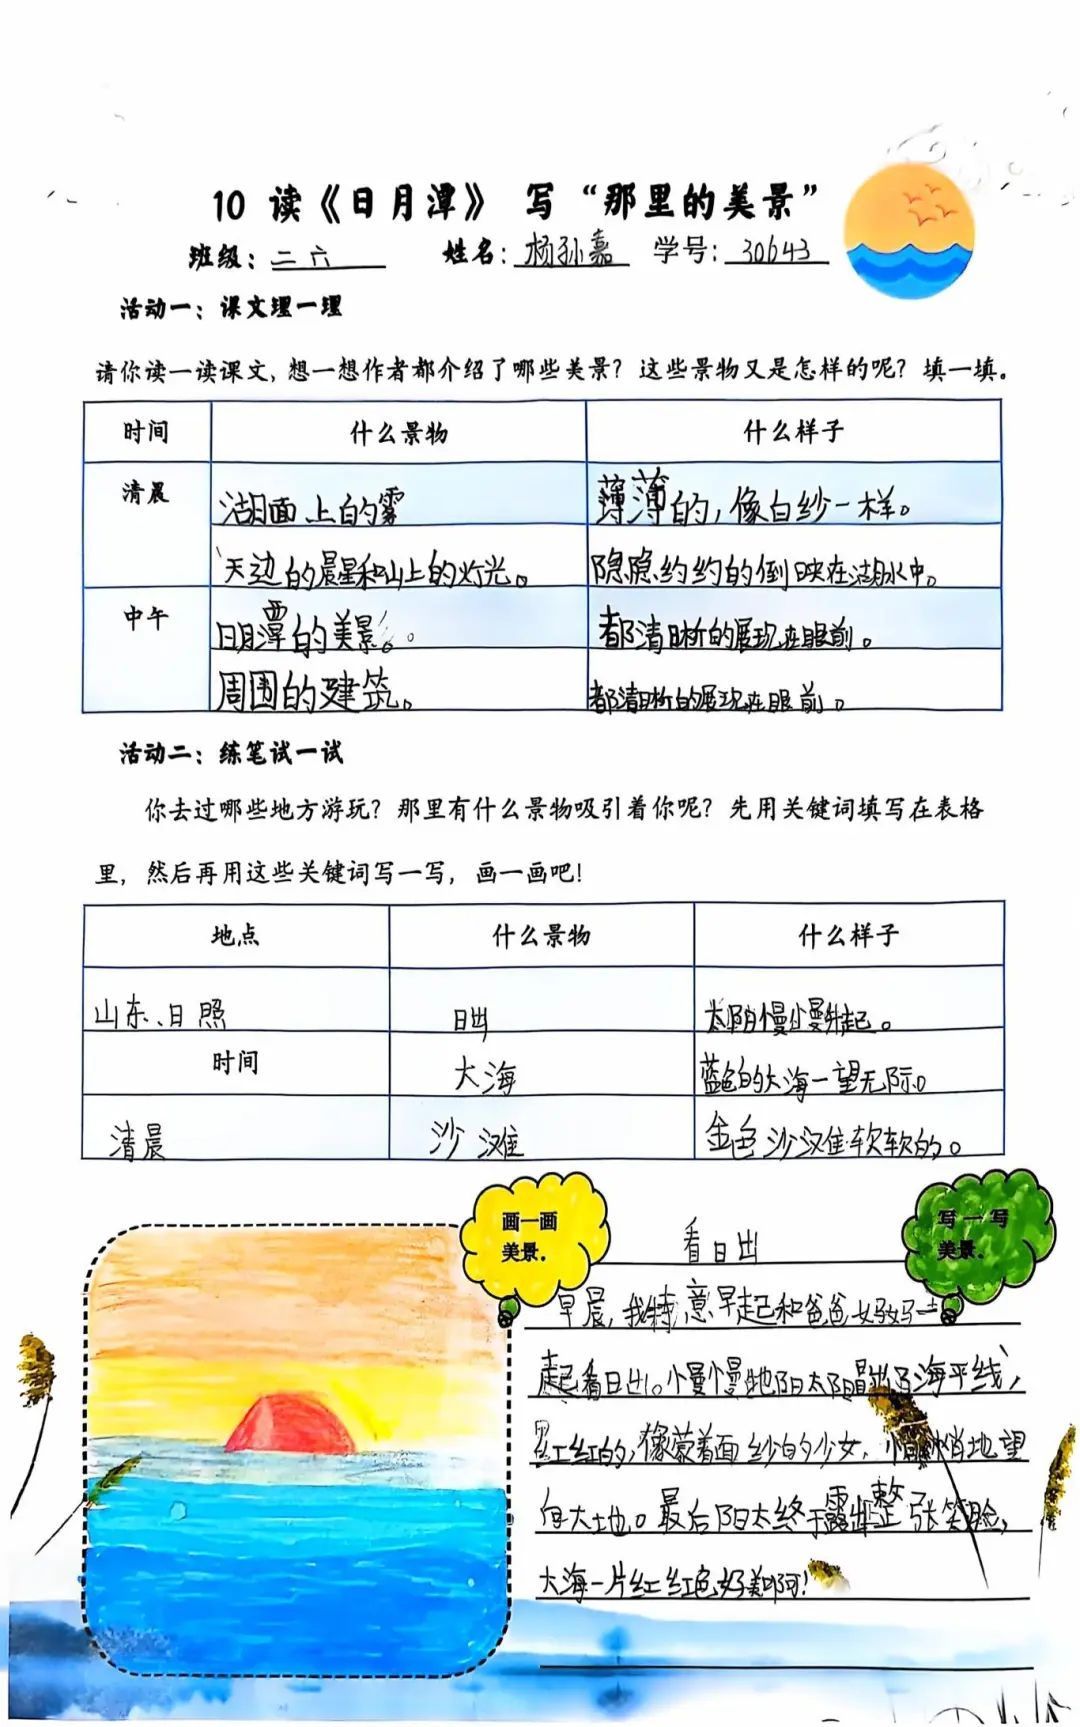 10 读《日月潭》 写“那里的美景”
班级：二六 姓名：杨孙嘉 学号：30643
活动一：课文理一理
请你读一读课文，想一想作者都介绍了哪些美景？这些景物又是怎样的呢？填一填。
时间 什么景物 什么样子
清晨 湖面上的雾 薄薄的，像白纱一样。
天边的晨星和山上的灯光。 隐隐约约的倒映在湖水中。
中午 日月潭的美景。 都清晰的展现在眼前。
周围的建筑。 都清晰的展现在眼前。
活动二：练笔试一试
你去过哪些地方游玩？那里有什么景物吸引着你呢？先用关键词填写在表格
里，然后再用这些关键词写一写，画一画吧！
地点 什么景物 什么样子
山东、日照 日出 太阳慢慢升起。
时间 大海 蓝色的大海一望无际。
清晨 沙滩 金色沙滩软软的。
画一画
美景.
写一写
美景.
看日出
早晨，我特意早起和爸爸妈妈一
起看日出。慢慢地阳太阳海平线，
红红的，像蒙着面纱的少女，悄悄地望
向大地。最后阳太终于露出整张笑脸，
大海一片红红色好美啊！